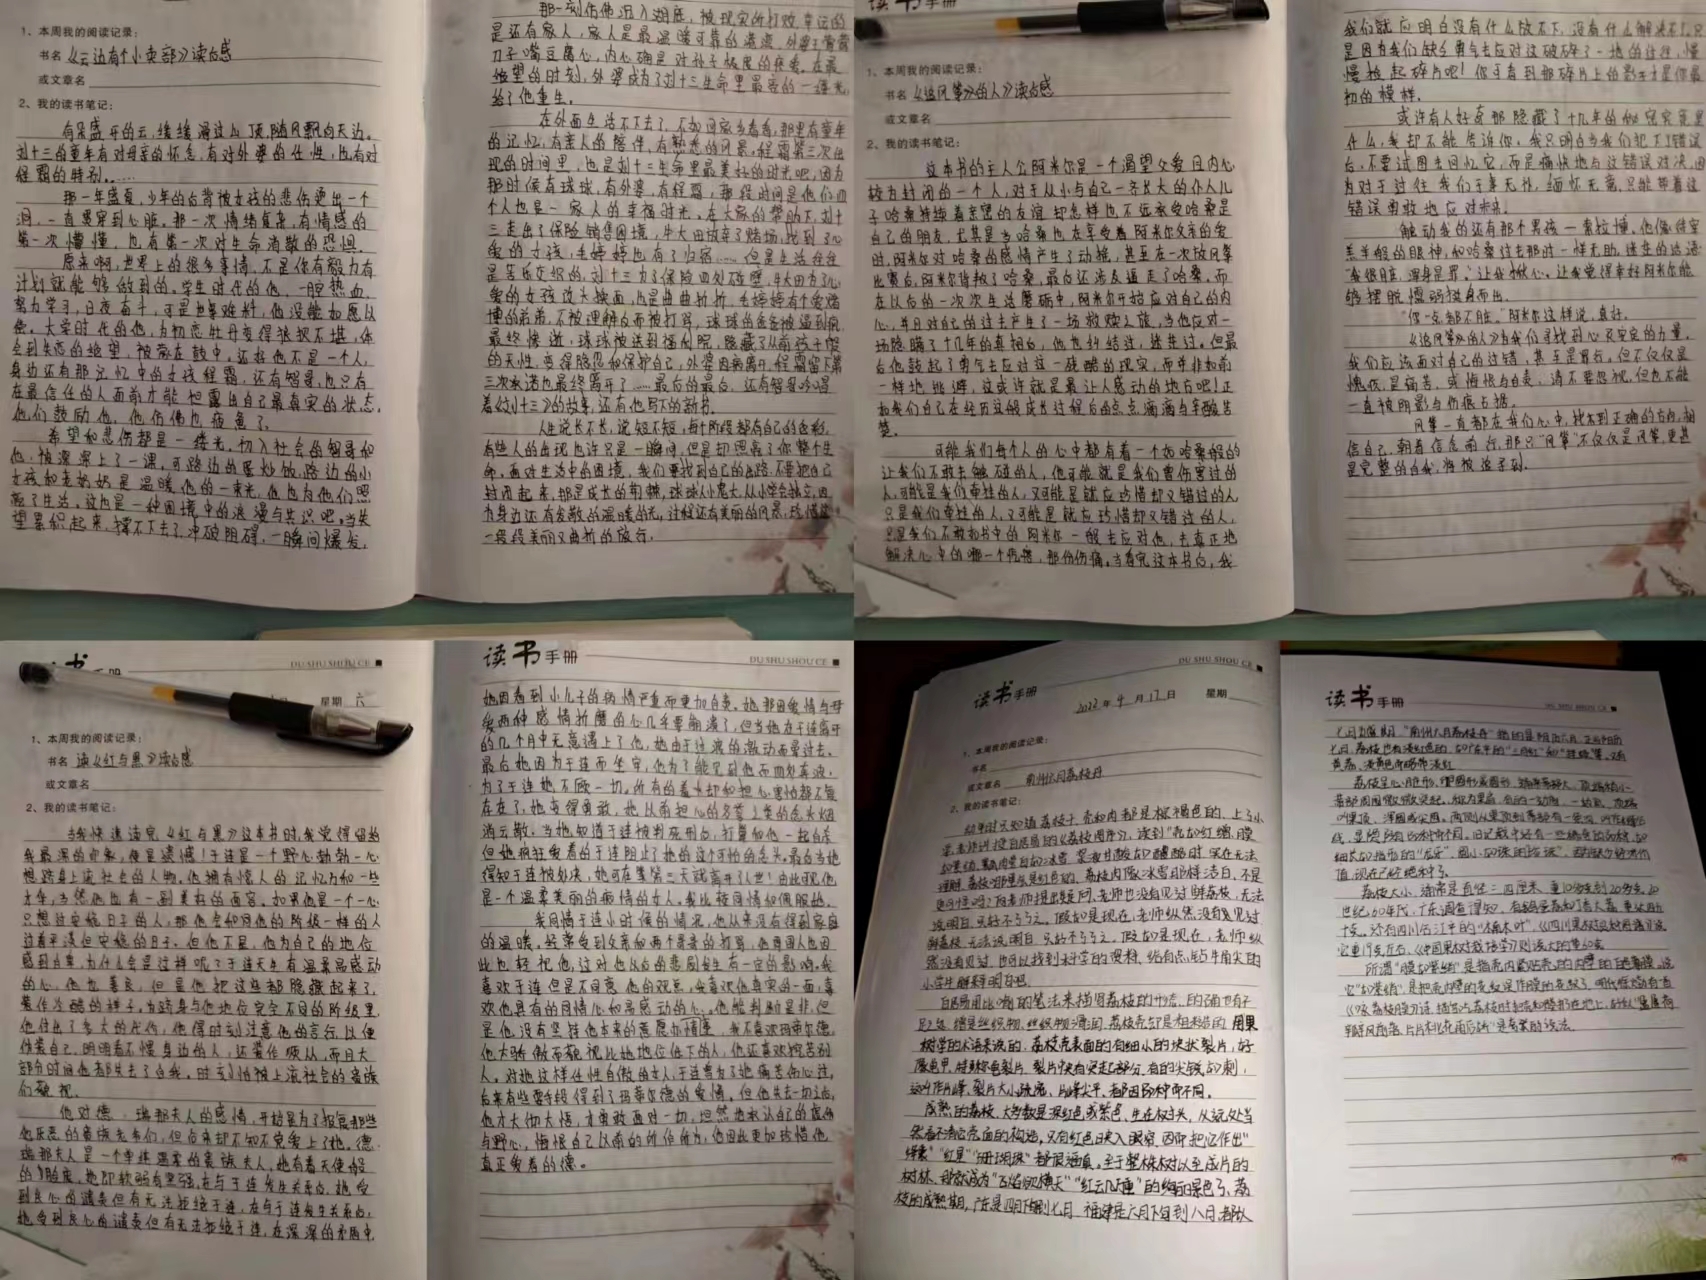 1、本周我的阅读记录:
书名《云边有个小卖部》读后感
或文章名
2、我的读书笔记:
有朵盛开的云,缓缓滑过山顶,随风飘向天边。
刘十三的童年有对母亲的怀念,有对外婆的任性,也有对
程霜的特别……
那一年盛夏,少年的后背被女孩的悲伤烫出一个
洞,一直贯穿到心脏。那一次情绪复杂,有情感的
第一次懵懂,也有第一次对生命消散的恐惧。
原来啊,世界上的很多事情,不是你有毅力有
计划就能够做到的。学生时代的他,一腔热血,
努力学习,日夜奋斗,可是也事难料,他没能如愿以
偿。大学时代的他,为初恋牡丹变得狼狈不堪,体
会到失恋的绝望,被蒙在鼓中。还好他不是一个人,
身边还有那记忆中的女孩程霜,还有智哥,也只有
在最信任的人面前才能袒露出自己最真实的状态,
他们鼓励他,他伤佛也疲惫了。
希望和悲伤都是一缕光。初入社会的智哥和
他,被深深上了一课,可路边的蛋炒饭,路边的小
女孩和老奶奶是温暖他的一束光,他也为他们照
亮了生活。这也是一种困境中的浪漫与共识吧。当失
望累积起来,撑不下去了,冲破阻碍,一瞬间爆发,
那一刻仿佛沉入湖底,被现实所打败,幸运的
是还有家人,家人是最温暖可靠的港湾,外婆
刀子嘴豆腐心,内心确是对孙子极度的疼爱。在最
绝望的时刻,外婆成了刘十三生命里最亮的一缕光,
给了他重生。
在外面生活不下去了,不如回家乡看看,那里有童年
的记忆,有亲人的陪伴,有熟悉的风景,程霜第三次出
现的时间里,也是刘十三生命里最美好的时光吧,因为
那时候有球球,有外婆,有程霜,那段时间是他们四
个人也是一家人的幸福时光。在大家的帮助下,刘十
三走出了保险销售困境,牛大田放弃了赌场,找到了心
爱的女孩,毛婷婷也有了归宿……但是生活往往
是苦乐交织的,刘十三为了保险四处碰壁,牛大田为了心
爱的女孩改头换面,也是曲曲折折,毛婷婷有个爱赌
博的弟弟,不被理解反而被打骂,球球的爸爸被逼到疯
最终惨逝,球球被送到福利院,隐藏了从前孩子般
的天性,变得隐忍和保护自己,外婆因病离开,程霜留下第
三次承诺也最终离开了……最后的最后,还有智哥吟唱
着《刘十三》的故事,还有他写下的新书。
人生说长不长,说短不短,每个阶段都有自己的色彩,
有些人的出现也许只是一瞬间,但是却照亮了你整个生
命,面对生活中的困境,我们要找到自己的出路,不要把自己
封闭起来,那是成长的荆棘,球球人小鬼大,从小学会独立,因
为身边还有发散的温暖的光,过程还有美丽的风景,珍惜这
一段段美丽又曲折的旅行。
读书手册
1、本周我的阅读记录:
书名《追风筝的人》读后感
或文章名
2、我的读书笔记:
这本书的主人公阿米尔是一个渴望父爱且内心
较为封闭的一个人,对于从小与自己一齐长大的仆人儿
子哈桑持续着亲密的友谊却怎样也不愿承受哈桑是
自己的朋友,尤其是当哈桑也在享受着阿米尔父亲的爱
时,阿米尔对哈桑的感情产生了动摇,甚至在一次放风筝
比赛后,阿米尔背叛了哈桑,最后还涉及逼走了哈桑。而
在以后的一次次生活磨砺中,阿米尔开始应对自己的内
心,并且对自己的过去产生了一场救赎之旅,当他应对一
场隐瞒了十几年的真相后,他也纠结过,迷失过。但最
后他鼓起了勇气去应对这一残酷的现实,而并非和前
一样地逃避,这或许就是最让人感动的地方吧!正
如我们自己在经历这般成长过程后的点点滴滴与辛酸苦
楚。
可能我们每个人的心中都有着一个如哈桑般的
让我们不敢去触碰的人,他可能就是我们曾伤害过的
人,可能是我们牵挂的人,又可能是就应珍惜却又错过的人
只是我们牵挂的人,又可能是就应珍惜却又错过的人,
只是我们不敢如书中的阿米尔一般去应对他,去真正地
解决心中的哪一个伤疤,那份伤痛。当看完这本书后,我
我们就应明白没有什么放不下,没有什么解决不了,只
是因为我们缺乏勇气去应对这破碎了一地的往往,慢
慢捡起碎片吧!你可看到那碎片上的影子才是你最
初的模样。
或许有人好奇那隐藏了十几年的秘密究竟是
什么,我却不能告诉你。我只明白当我们犯下错误
后,不要试图去回忆它,而是痛快地与这错误对决,因
为对于过往,我们于事无补,缅怀无意,只能带着这
错误勇敢地应对未来。
触动我的还有那个男孩——索拉博。他像待宰
羔羊般的眼神,和哈桑过去那时一样无助。迷茫的话语:
“我很脏,浑身是罪”,让我揪心。让我觉得幸好阿米尔能
够摆脱懦弱挺身而出。
“你一点都不脏。”阿米尔这样说,真好。
《追风筝的人》为我们寻找到心灵安定的力量。
我们应该面对自己的过错,甚至是背后,但不仅仅是
愧疚,是痛苦,或悔恨与自责。请不要忽视,但也不能
一直被阴影与伤痕占据。
风筝一直都在我们心中,找不到正确的方向,相
信自己,朝着信念前行,那只“风筝”不仅仅是风筝,更甚
是完整的自我,将被追寻到。
DU SHU SHOU CE
星期 六
1、本周我的阅读记录:
书名 读《红与黑》读后感
或文章名
2、我的读书笔记:
当我快速读完《红与黑》这本书时,我觉得留给
我最深的印象,便是遗憾!于连是一个野心勃勃一心
想跻身上流社会的人物。他拥有惊人的记忆力和一些
才华,当然他也有一副美好的面容。如果他是一个一心
只想过安稳日子的人,那他会如同他的阶级一样的人
过着平淡但安稳的日子。但他不是,他为自己的地位
感到自卑,为什么会是这样呢?于连天生有温柔易感动
的心,他也善良,但是他把这些都隐藏起来了,
装作冷酷的样子。当跻身与他地位完全不同的阶级里,
他付出了多大的代价,他得时刻注意他的言行,以便
伪装自己,明明看不惯身边的人,还装作顺从,而且大
部分时间他都失去了自我。时刻怕被上流社会的贵族
们藐视。
他对德·瑞那夫人的感情,开始是为了报复那些
他厌恶的贵族老爷们,但后来却不知不觉爱上了她。德·
瑞那夫人是一个单纯温柔的贵族夫人,她有着天使般
的脸庞,她即软弱有坚强,在与于连发生关系后,她受
到良心的谴责但有无法拒绝于连,在与于连发生关系后,
她受到良心的谴责但有无法拒绝于连,在深深的矛盾中,
读书手册 DU SHU SHOU CE
她因看到小儿子的病情严重而更加自责。她那因爱情与母
爱两种感情折磨的心几乎要崩溃了,但当她在于连离开
的几个月中无意遇上了他,她由于过激的激动而晕过去。
最后她因为于连而坐牢,他为了能见到他而四处奔波,
为了于连她不顾一切。所有的羞怯和担心害怕都不复
存在了,她变得勇敢。她以前担心的名誉之类的念头烟
消云散。当她知道于连被判死刑后,打算和他一起自杀
但她疯狂爱着的于连阻止了她的这个可怕的念头。最后当她
得知于连被处决,她可在第三天就离开人世!由此可见,他
是一个温柔美丽的痴情的女人。我比较同情和佩服她。
我同情于连小时候的情况,他从来没有得到家庭
的温暖。经常受到父亲和两个哥哥的打骂,他周围人也因
此也轻视他,这对他以后的悲剧发生有一定的影响。我
喜欢于连但是不同意他的观点,我喜欢他真实的一面,喜
欢他具有的同情心和易感动的心。他能判断是非,但
是他没有坚持他本来的意愿办情事。我不喜欢玛蒂尔德,
他太骄傲而藐视比她地位低下的人,他还喜欢挖苦别
人。对她这样任性自傲的女人,于连费了她痛苦伤心过,
后来有些耍手段得到了玛蒂尔德的爱情。但他失去一切后,
他才大彻大悟,才勇敢面对一切,坦然地承认自己的虚伪
与野心,悔恨自己以前的所作所为,他因此更加珍惜他
真正爱着的德。
DU SHU SHOU CE
读书手册 2022年 4月 17日 星期
1、本周我的阅读记录:
书名
或文章名 南州六月荔枝丹
2、我的读书笔记:
幼年时只知道荔枝干,壳和肉都是棕褐色的。上了小
学,老师讲授白居易的《荔枝图序》,读到“壳如红缯,膜
如紫绡,瓤肉莹白如冰雪,浆液甘酸如醴酪”时,实在无法
理解,荔枝哪里会是红色的,荔枝肉像冰雪那样洁白,不是
更可怪吗?向老师提出疑问,老师也没有见过鲜荔枝,无法
说明白,只好不了了之。假如是现在,老师纵然没有见过
鲜荔枝,无法说明白,只好不了了之。假如是现在,老师纵
然没有见过,也可以找到科学的资料,给有点钻牛角尖的
小学生解释明白吧。
白居易用比喻的笔法来描写荔枝的形态,的确也有不
足之处。缯是丝织物,丝织物滑润,荔枝壳却是粗糙的。用果
树学的术语来说的,荔枝壳表面的有细小的块状裂片,好
像龟甲,特称龟裂片。裂片中央有突起部分,有的尖锐如刺,
这叫作片峰。裂片大小疏密,片峰尖平,都因品种而不同。
成熟的荔枝,大多数是深红色或紫色。生在树头,从远处当
然看不清它壳面的构造,只有红色映入眼帘,因而把它作出“
绛囊”“红星”“珊瑚珠”都很逼真。至于整株树以至成片的
树林,那就成为“飞焰欲横天”“红云几万重”的绚丽景色了。荔
枝的成熟期,广东是四月下旬到七月,福建是六月下旬到八月,都以
读书手册 DU SHU SHOU CE
七月为盛期,“南州六月荔枝丹”指的是阴历六月,正当阳历
七月。荔枝也有淡红色的,如广东产的“三月红”和“挂绿”等。又有
黄荔,淡黄色而略带淡红。
荔枝呈心脏形、卵圆形或圆形,
线,显隐
细长如指形的
值,现在已经绝种了。
荔枝大小,通常是直径三四厘米,重10多克到20多克。20
世纪60年代,广东调查得知,
它重19克左右。《中国果树栽培学》则说大的重60克。
所谓“膜如紫绡”是指壳内紧贴壳的内壁的白色薄膜。说
它“如紫绡”,是把壳内壁的花纹误作膜的花纹了。